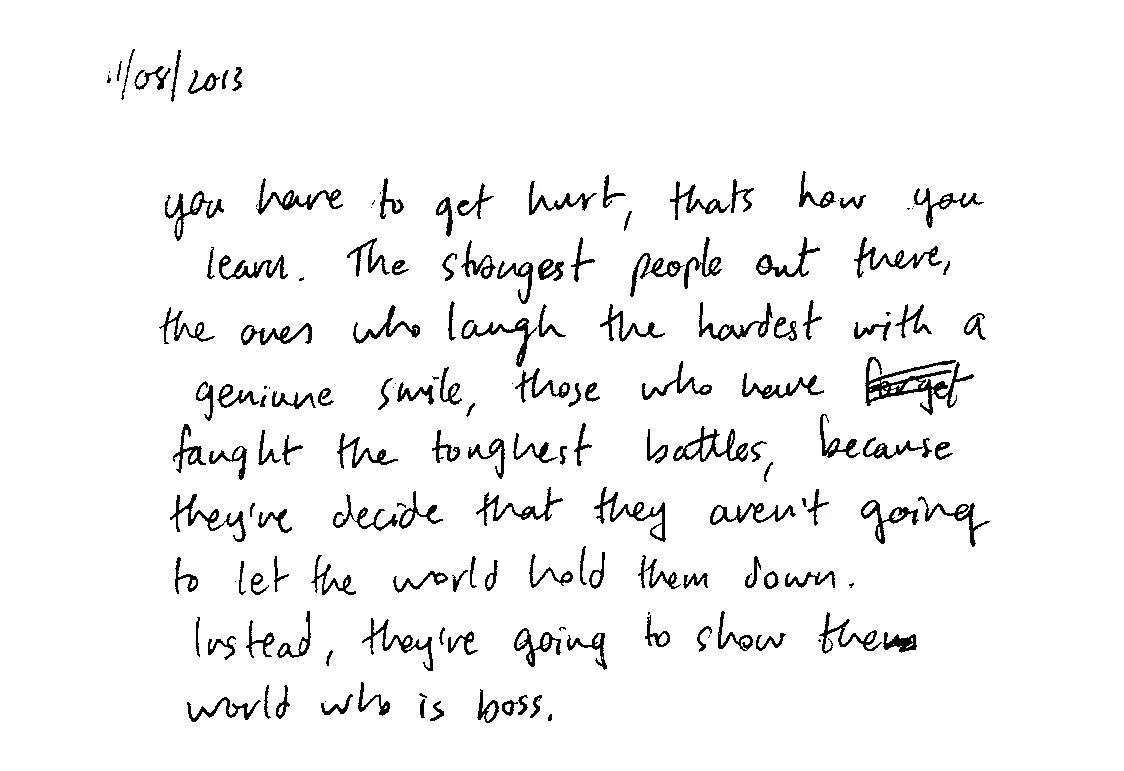 11/08/2013
you have to get hurt, thats how you
learn. The strongest people out there,
the ones who laugh the hardest with a
geniune smile, those who have forget
faught the toughest battles, because
they've decide that they aren't going
to let the world hold them down.
Instead, they're going to show the
world who is boss.